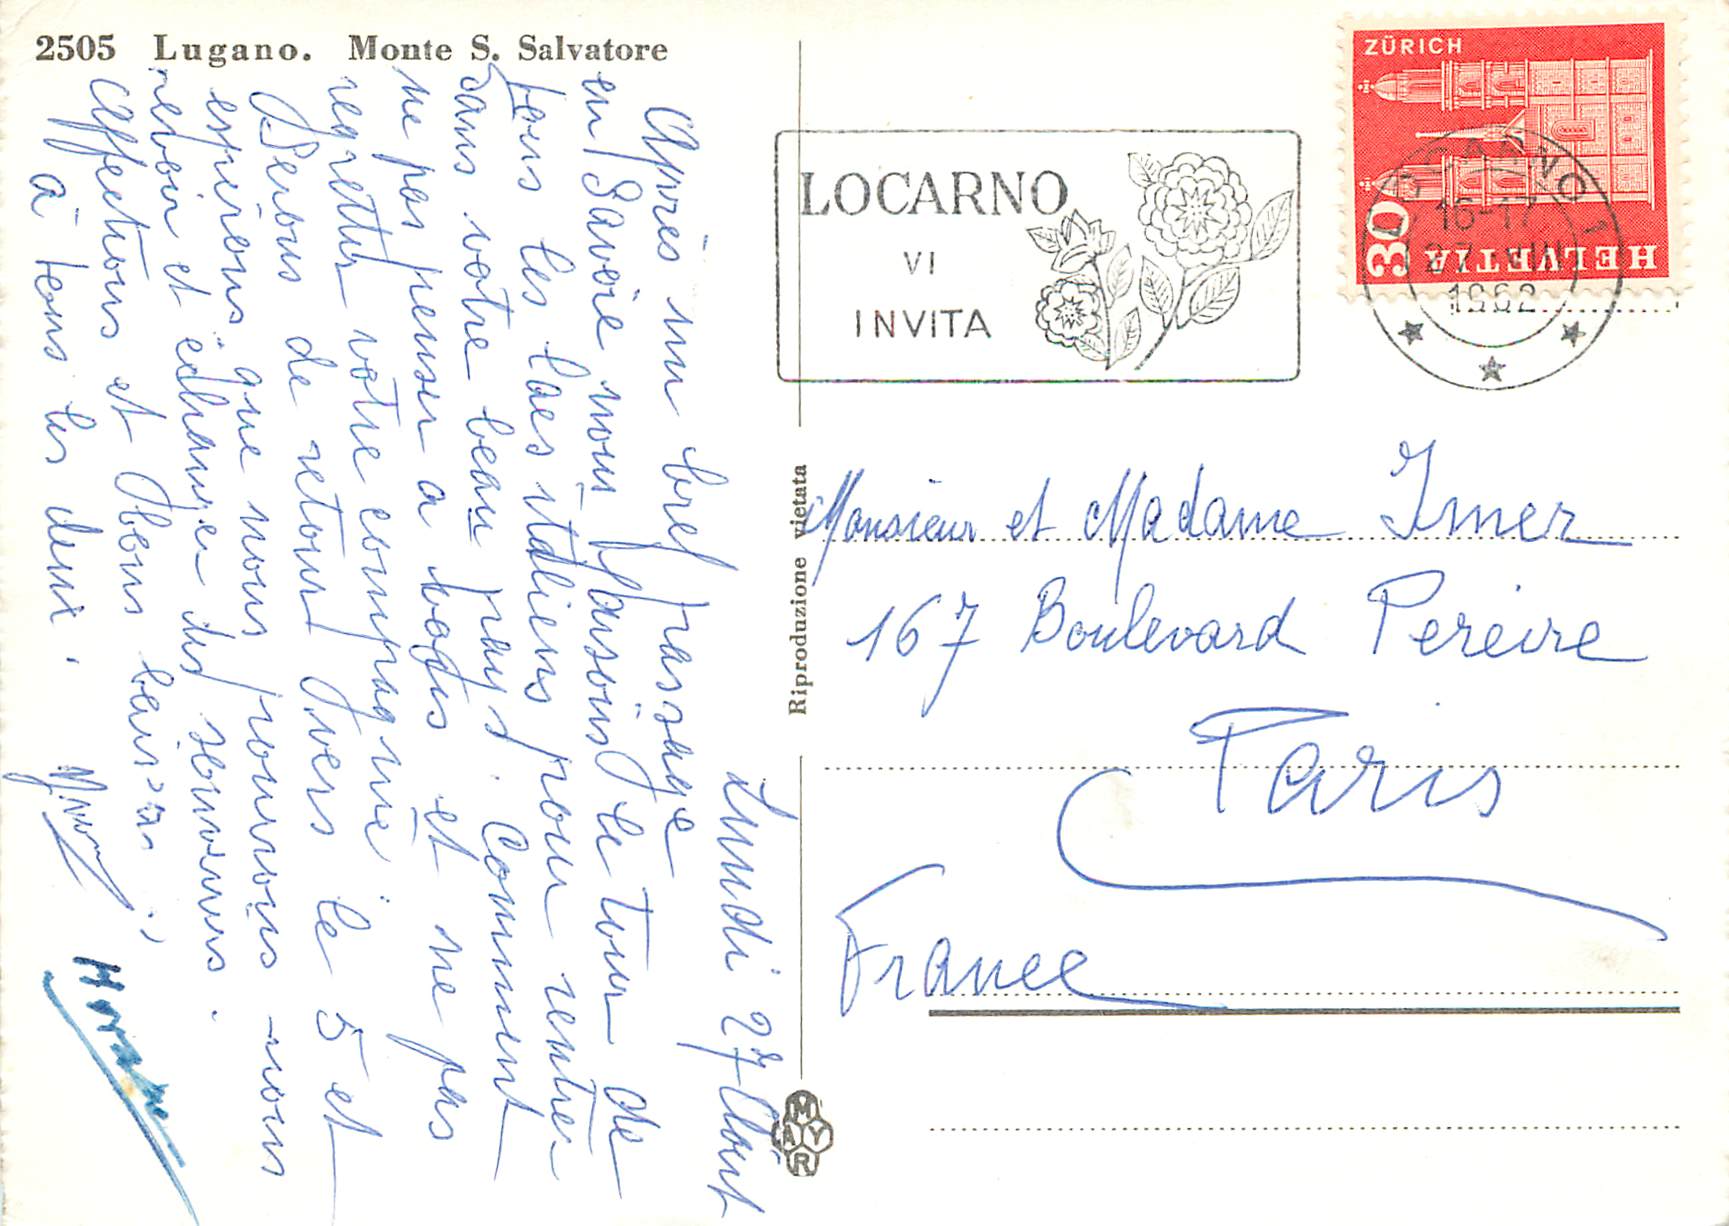 2505 Lugano. Monte S. Salvatore
Lundi 27 Aout
Après un bref passage
en Savoie nous faisons le tour de
tous les lacs italiens pour rentrer
dans votre beau pays. Comment
ne pas penser a vous et ne pas
regretter votre compagnie
Serons de retour vers le 5 et
espérons que nous pourrons nous
revoir et échanger des souvenirs.
Affections et bons baisers
à tous les deux.
Riproduzione vietata
MAYR
LOCARNO
VI
INVITA
ZÜRICH
30
HELVETIA
LOCARNO 1
16-17
27. VIII
1962
Monsieur et Madame Imer
167 Boulevard Pereire
Paris
France